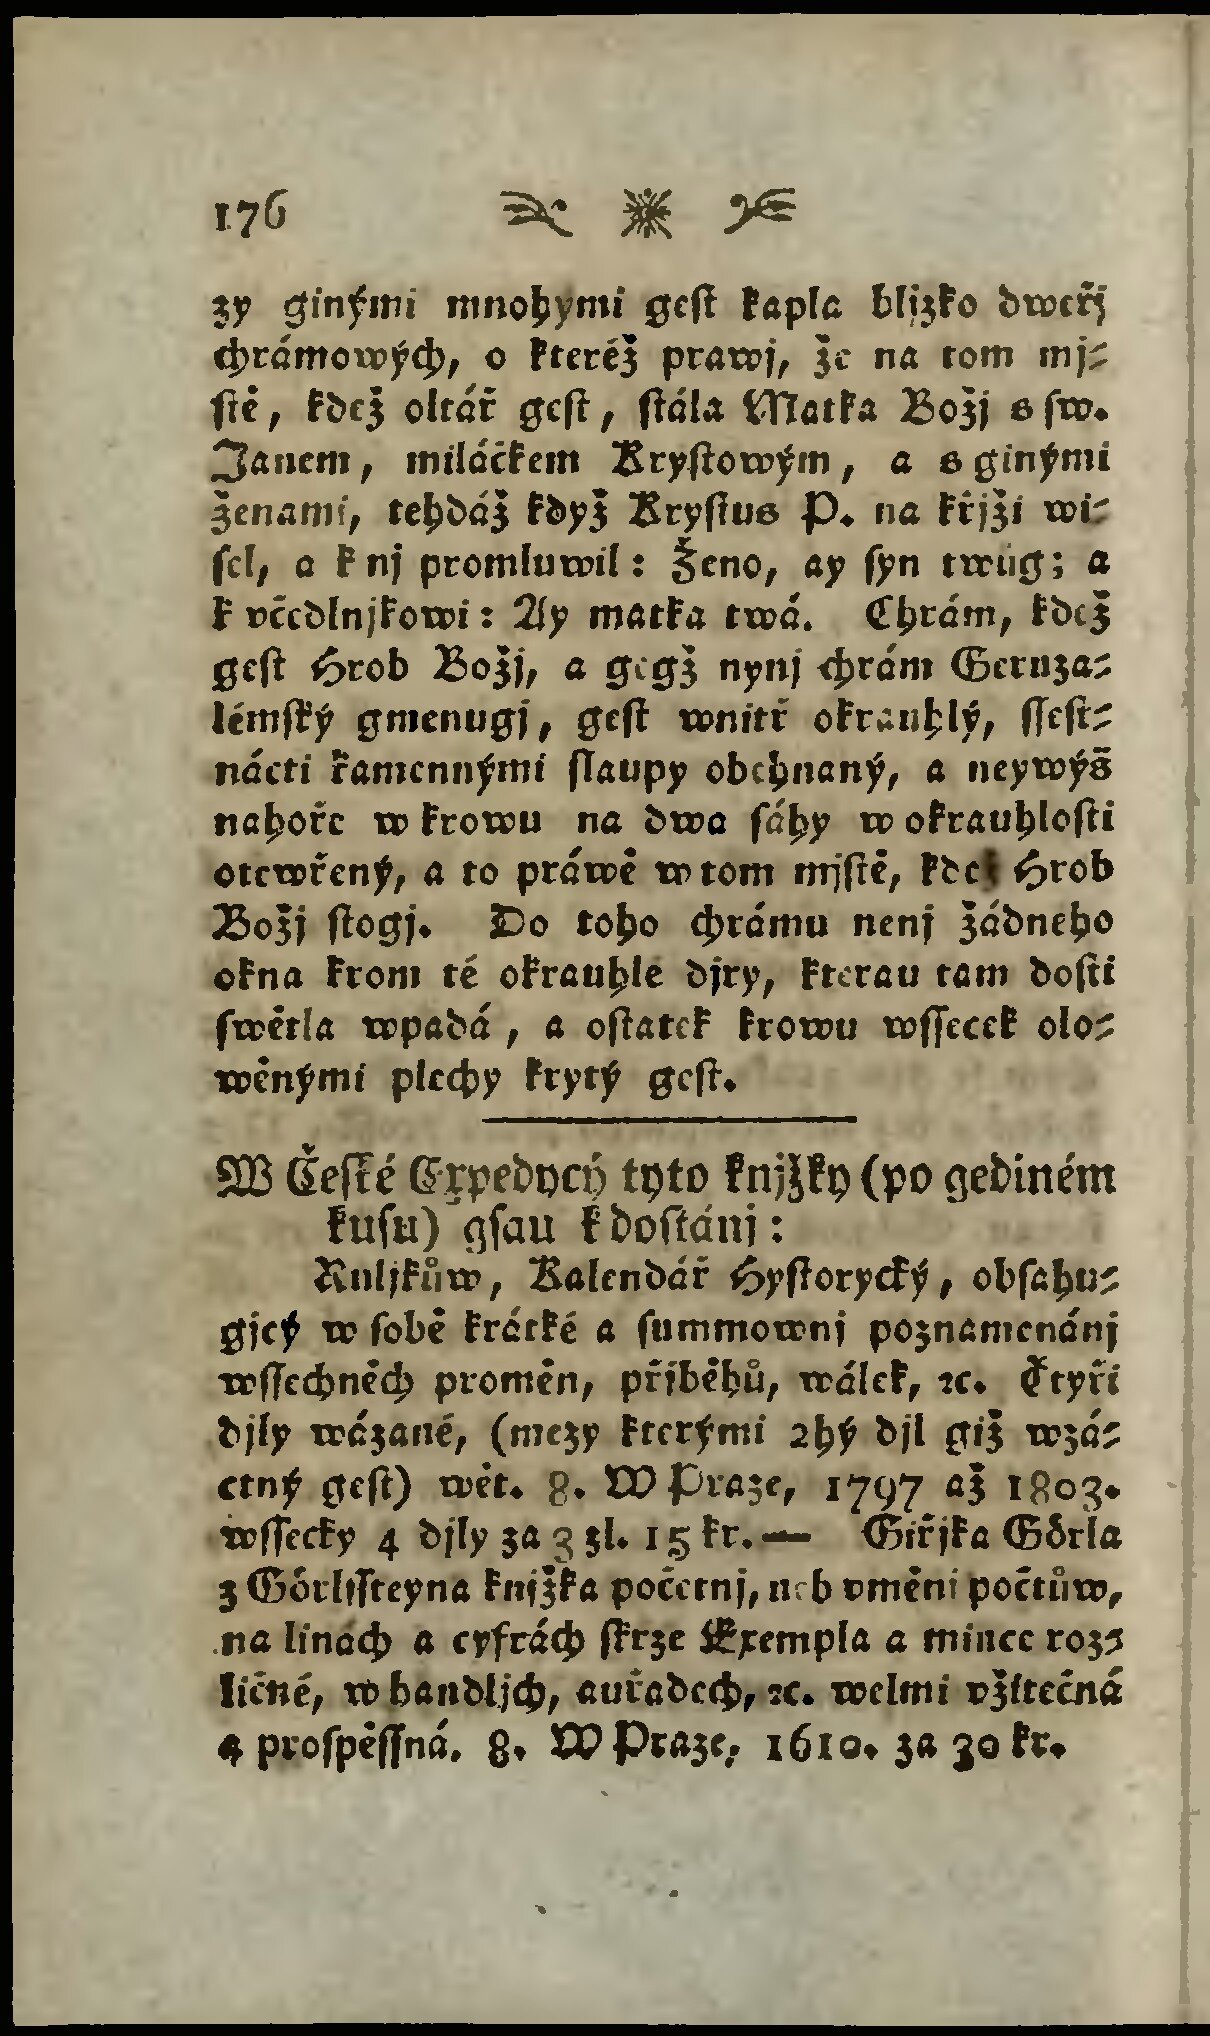 176
zy ginými mnohými gest kapla bljzko dweřj
chrámowých, o kteréž prawj, že na tom mj-
stě, kdež oltář gest, stála Matka Božj s sw.
Janem, miláčkem Krystowým, a s ginými
ženami, tehdáž když Krystus P. na křjži wi-
sel, a k nj promluwil: Ženo, ay syn twůg; a
k včedlnjkowi: Ay matka twá. Chrám, kdež
gest Hrob Božj, a gegž nynj chrám Geruza-
lémský gmenugj, gest wnitř okrauhlý, ssest-
nácti kamennými slaupy obehnaný, a neywýš
nahoře w krowu na dwa sáhy w okrauhlosti
otewřený, a to práwě w tom mjstě, kdež Hrob
Božj stogj. Do toho chrámu nenj žádneho
okna krom té okrauhlé djry, kterau tam dosti
swětla wpadá, a ostatek krowu wssecek olo-
wěnými plechy krytý gest.
W České Expedycý tyto knjžky (po gediném
kusu) gsau k dostánj:
Kuljkůw, Kalendář Hystorycký, obsahu-
gjcý w sobě krátké a summownj poznamenánj
wssechněch proměn, přjběhů, wálek, ꝛc. Čtyři
djly wázané, (mezy kterými 2hý djl giž wzá-
ctný gest) wět. 8. W Praze, 1797 až 1803.
wssecky 4 djly za 3 zl. 15 kr. — Giřjka Görla
z Görlssteyna knjžka početnj, neb vměni počtůw,
na linách a cyfrách skrze Exempla a mince roz-
ličné, w handljch, auřadech, ꝛc. welmi vžitečná
a prospěssná. 8. W Praze, 1610. za 30 kr.